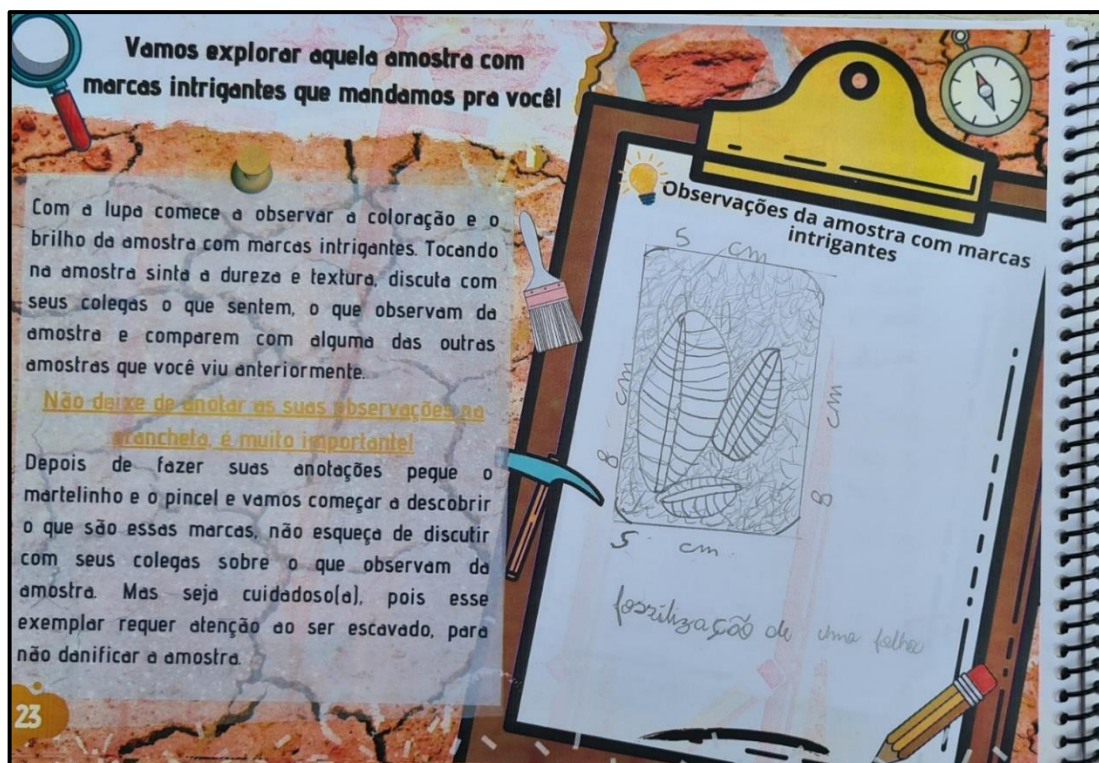 Vamos explorar aquela amostra com
marcas intrigantes que mandamos pra você!
Com a lupa comece a observar a coloração e o
brilho da amostra com marcas intrigantes. Tocando
na amostra sinta a dureza e textura, discuta com
seus colegas o que sentem, o que observam da
amostra e comparem com alguma das outras
amostras que você viu anteriormente.
Não deixe de anotar as suas observações na
prancheta, é muito importante!
Depois de fazer suas anotações pegue o
martelinho e o pincel e vamos começar a descobrir
o que são essas marcas, não esqueça de discutir
com seus colegas sobre o que observam da
amostra. Mas seja cuidadoso(a), pois esse
exemplar requer atenção ao ser escavado, para
não danificar a amostra.
23
Observações da amostra com marcas
intrigantes
5 cm
8 cm
8 cm
5 cm
fossilização de uma folha